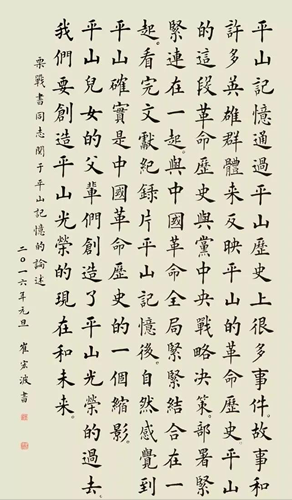 平山記憶通過平山歷史上很多事件。故事和
許多英雄群體来反映平山的革命歷史平山
的這段革命歷史與黨中央戰略決策。部署緊
緊連在一起與中國革命全局緊緊結合在一
起。看完文獻紀録片平山記憶後。自然感覺到
平山確實是中國革命歷史的一個縮影。
平山兒女的父輩們創造了平山光榮的過去。
我們要創造平山光榮的現在和未来。
栗戰書同志関于平山記憶的論述
二〇一六年元旦 崔宏波書